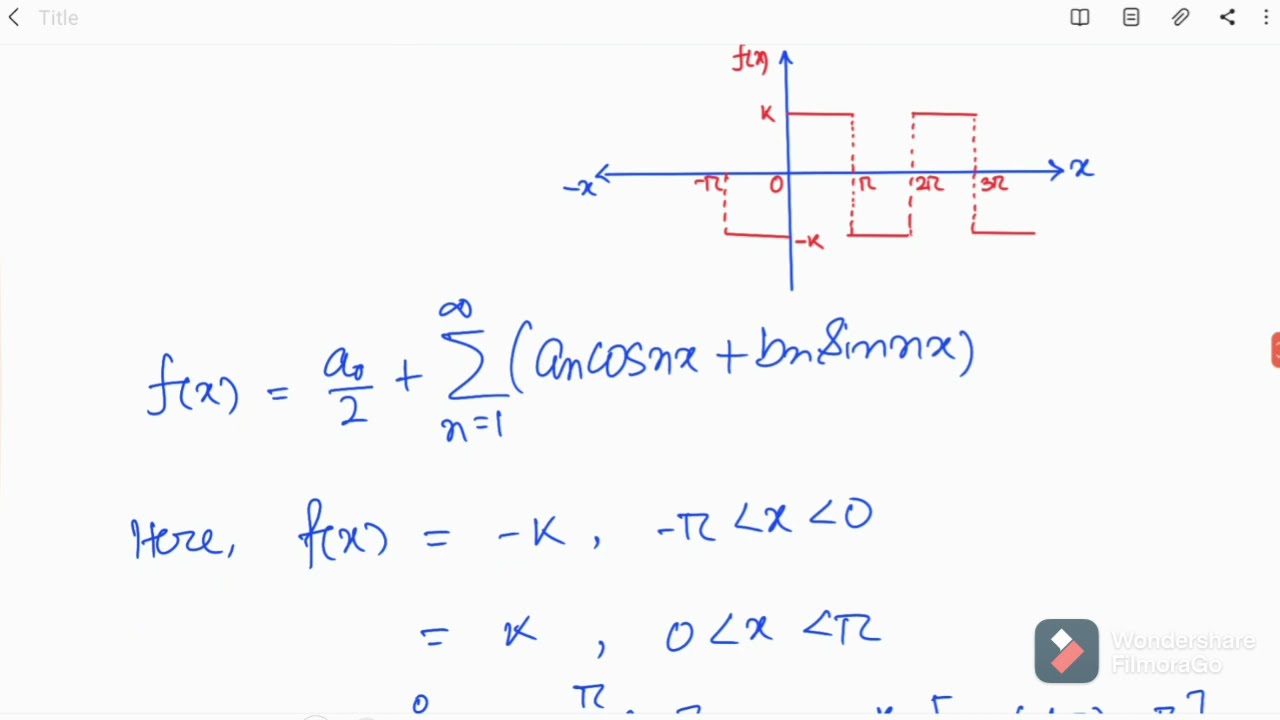 Title
f(x)
K
-x
-π
0
π
2π
3π
x
-K
f(x) = a₀/2 + ∞ Σ n=1 (an cos nx + bn sin nx)
Here, f(x) = -K, -π < x < 0
= K, 0 < x < π
Wondershare
FilmoraGo